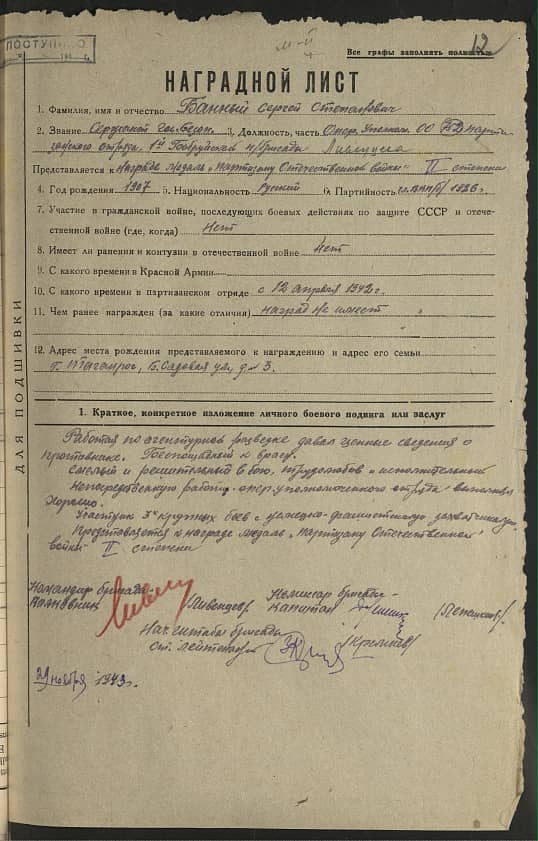 ПОСТУПИЛО
12
Все графы заполнять полностью
НАГРАДНОЙ ЛИСТ
1. Фамилия, имя и отчество Банный Сергей Степанович
2. Звание Сержант Гос. Безоп. 3. Должность, часть Опер. Уполном. ОО парти
занского отряда 1й Бобруйской п/бригады
Представляется к награде медаль „Партизану Отечественной войны" II степени
4. Год рождения 1907 5. Национальность Русский 6. Партийность 1926 г.
7. Участие в гражданской войне, последующих боевых действиях по защите СССР и отече-
ственной войне (где, когда) Нет
8. Имеет ли ранения и контузии в отечественной войне Нет
9. С какого времени в Красной Армии
10. С какого времени в партизанском отряде с 12 апреля 1942 г.
11. Чем ранее награжден (за какие отличия) наград не имеет
12. Адрес места рождения представляемого к награждению и адрес его семьи
г. Таганрог, Б. Садовая ул. д. 3.
ДЛЯ ПОДШИВКИ
1. Краткое, конкретное изложение личного боевого подвига или заслуг
Работая по агентурной разведке давал ценные сведения о
противнике. Беспощадный к врагу.
Смелый и решительный в бою, трудолюбив и исполнительный
Непосредственную работу опер. уполномоченного отряда выполнял
Хорошо.
Участник 3х крупных боев с немецко-фашистскими захватчиками.
Представляется к награде медаль „Партизану Отечественной
войны" II степени
Командир бригады
Полковник /Ливенцев/
Комиссар бригады
Капитан
Нач. штаба бригады
Ст. лейтенант
29 ноября 1943 г.